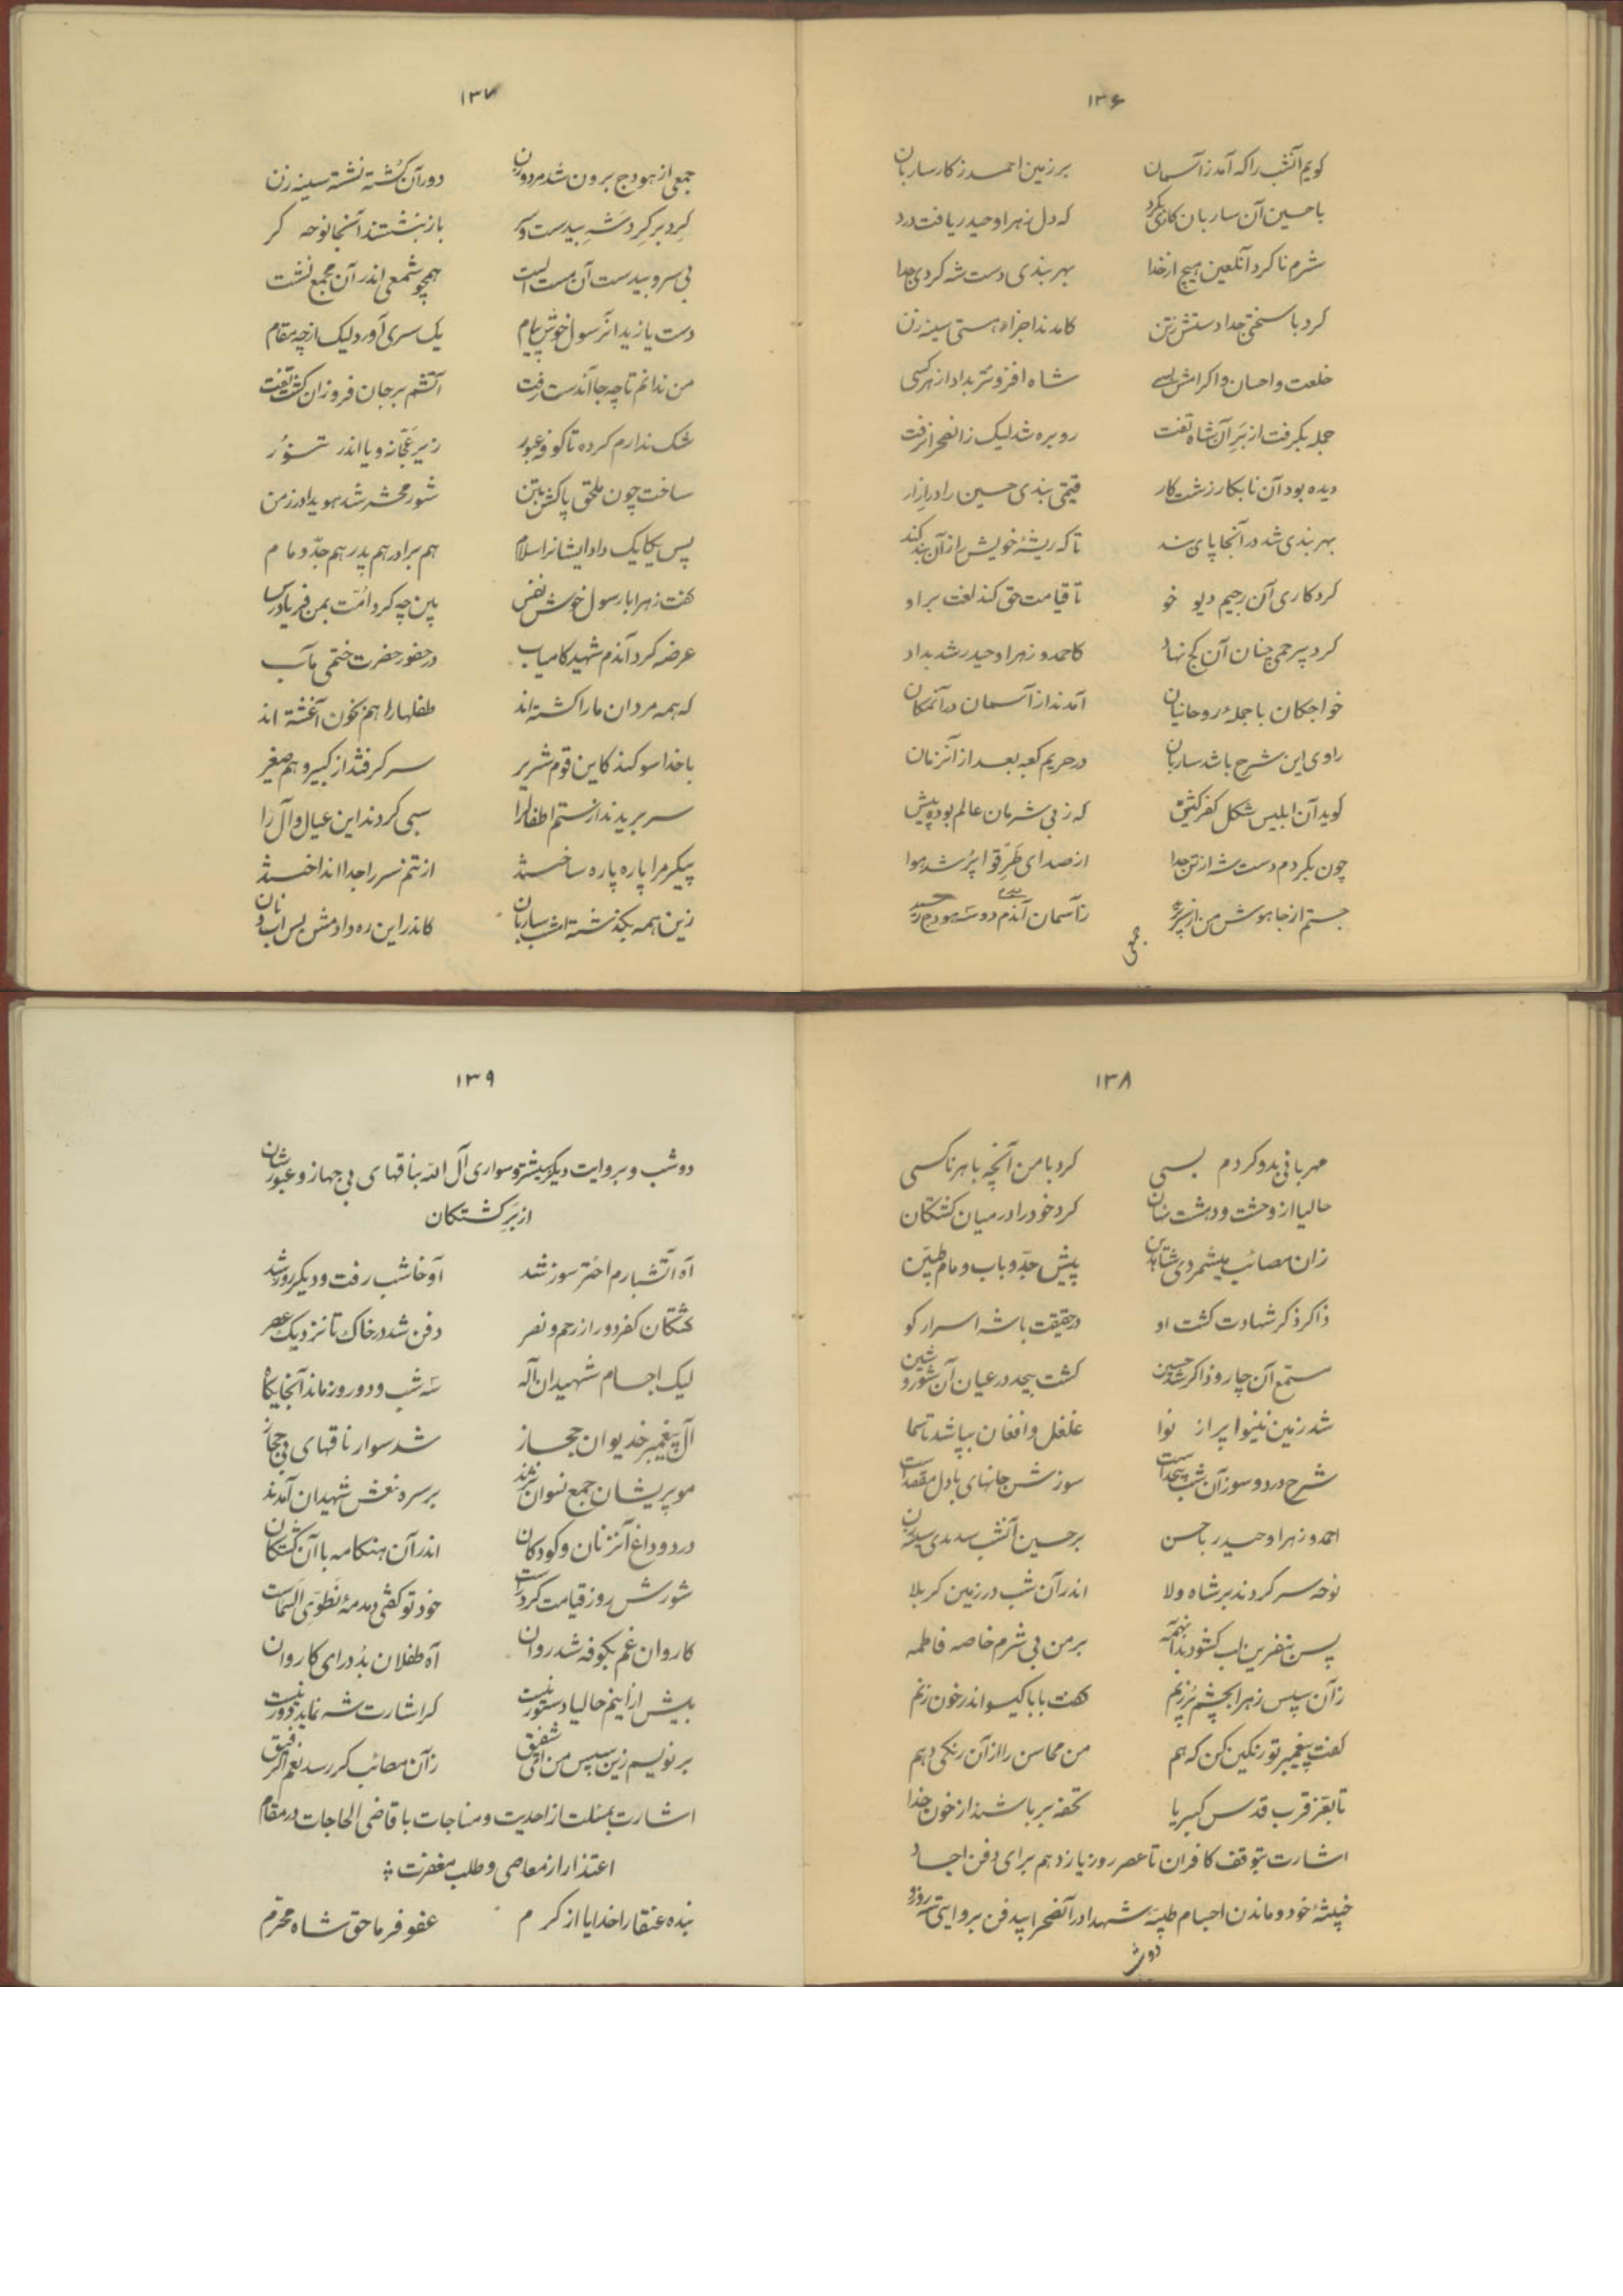 ۱۳۶
کویم آنشب را که آمد ز آسمان بر زمین احمد ز کار ساربان
با حسین آن ساربان کاری بکرد که دل زهرا و حیدر یافت درد
شرم نا کرد آنلعین هیچ از خدا بهر بندی دست شه کردی جدا
کرد با سختی جدا دستش ز تن کامدند اجزاء هستی سینه زن
خلعت و احسان و اکرامش بسی شاه افزونتر بداد از هر کسی
جمله بکرفت از بَرِ آن شاه تفت روبره شد لیک زانصحرا نرفت
دیده بود آن نابکار زشت کار قیمتی بندی حسین را در ازار
بهر بندی شد در آنجا پای بند تا که ریشهٔ خویش را زآن بند کند
کرد کاری آن رجیم دیو خو تا قیامت حق کند لعنت بر او
کرد بیرحمی چنان آن کج نهاد کاحمد و زهرا و حیدر شد بداد
خواجکان با جملهٔ روحانیان آمدند از آسمان در آنمکان
راوی این شرح باشد ساربان در حریم کعبه بعد از آنزمان
کوید آن ابلیس شکل کفر کیش که ز بی شرمان عالم بود پیش
چون بکردم دست شه از تن جدا از صدای طَرِّقوا پر شد هوا
جستم از جا هوش من از سر پرید زآسمان آندم دو سه هودج رسید
جمعی
۱۳۷
جمعی از هودج برون شد مرد و زن دور آن کُشته نشسته سینه زن
کِرد بر کِرد شَهِ بیدست و سر باز بنشستند آنجا نوحه کر
بی سر و بیدست آن مست الست همچو شمعی اندر آن مجمع نشست
دست یازید آنرسول خوش پیام یک سری آورد لیک از چه مقام
من ندانم تا چه جا آندست رفت آتشم بر جان فروزان کشت تفت
شک ندارم کرده تا کوفه عبور زیر عَجّانه و یا اندر تنوُر
ساخت چون ملحق پاکش بتن شور محشر شد هویدا در زمن
پس یکایک داد ایشانرا سلام هم برادر هم پدر هم جدّ و مام
کفت زهرا با رسول خوش نفس بین چه کرد امّت بمن فریادرس
عرضه کرد آندم شهید کامیاب در حضور حضرت ختمی مآب
که همه مردان ما را کشته اند طفلها را هم بخون آغشته اند
با خدا سوکند کاین قوم شریر سر کرفتند از کبیر و هم صغیر
سر بریدند از ستم اطفال را سبی کردند این عیال و آل را
پیکر مرا پاره پاره ساختند از تنم سر را جدا انداختند
زین همه بکذشته امشب ساربان کاندر این ره دادمش بس آب و نان
۱۳۸
مهربانی بدو کردم بسی کرد با من آنچه با هر ناکسی
حالیا از وحشت و دهشت نهان کرد خود را در میان کشتکان
زان مصائب میشمردی شاه دین پیش جدّ و باب و مام طیّبین
ذاکر ذکر شهادت کشت او در حقیقت با شه اسرار کو
مستمع آن چار و ذاکر شد حسین کشت بیحد در عیان آن شور و شین
شد زمین نینوا پر از نوا غلغل و افغان بپا شد تا سما
شرح درد و سوز آن شب بیحد است سوزش جانهای با دل مقصد است
احمد و زهرا و حیدر با حسن بر حسین آنشب بدندی سینه زن
نوحه سر کردند بر شاه ولا اندر آن شب در زمین کربلا
پس بنفرین لب کشودند آنهمه بر من بی شرم خاصه فاطمه
زآن سپس زهرا بچشم پُر ز نم کفت بابا کیسو اندر خون زنم
کفت پیغمبر تو رنکین کن که هم من محاسن را از آن رنکی دهم
تا بعَرّ قرب قدس کبریا تحفه بر باشند از خون خدا
اشارت بتوقف کافران تا عصر روز یازدهم برای دفن اجساد
خبیثهٔ خود و ماندن اجسام طیبهٔ شهدا در آنصحرا بیدفن بروایتی سه روز و
دوشب
۱۳۹
دوشب و بروایت دیکر بیشتر و سواری آل الله بناقهای بی جهاز و عبورشان
از بَرِ کشتکان
آه آتشبارم اختر سوز شد آوخا شب رفت و دیکر روز شد
کشتکان کفر دور از رحم و نصر دفن شد در خاک تا نزدیک عصر
لیک اجسام شهیدان آله سَه شب و دو روز ماند آنجایکاه
آل پیغمبر خدیوان حجاز شد سوار ناقهای بی جهاز
مو پریشان جمع نسوان بر سره نعش شهیدان آمدند
درد و داغ آنزنان و کودکان اندر آن هنکامه با آن کشتکان
شورش روز قیامت کرد راست خود تو کفتی دمدمهٔ نَطوِی السَّماست
کاروان غم بکوفه شد روان آه طفلان بُد درای کاروان
بیش از اینم حالیا دستور نیست کر اشارت شه نماید دور نیست
بر نویسم زین سپس من ای شفیق زآن مصائب کر رسد نعم الرفیق
اشارت بمسئلت از احدیت و مناجات با قاضی الحاجات در مقام
اعتذار از معاصی و طلب مغفرت
بنده عنقا را خدایا از کرم عفو فرما حق شاه محترم